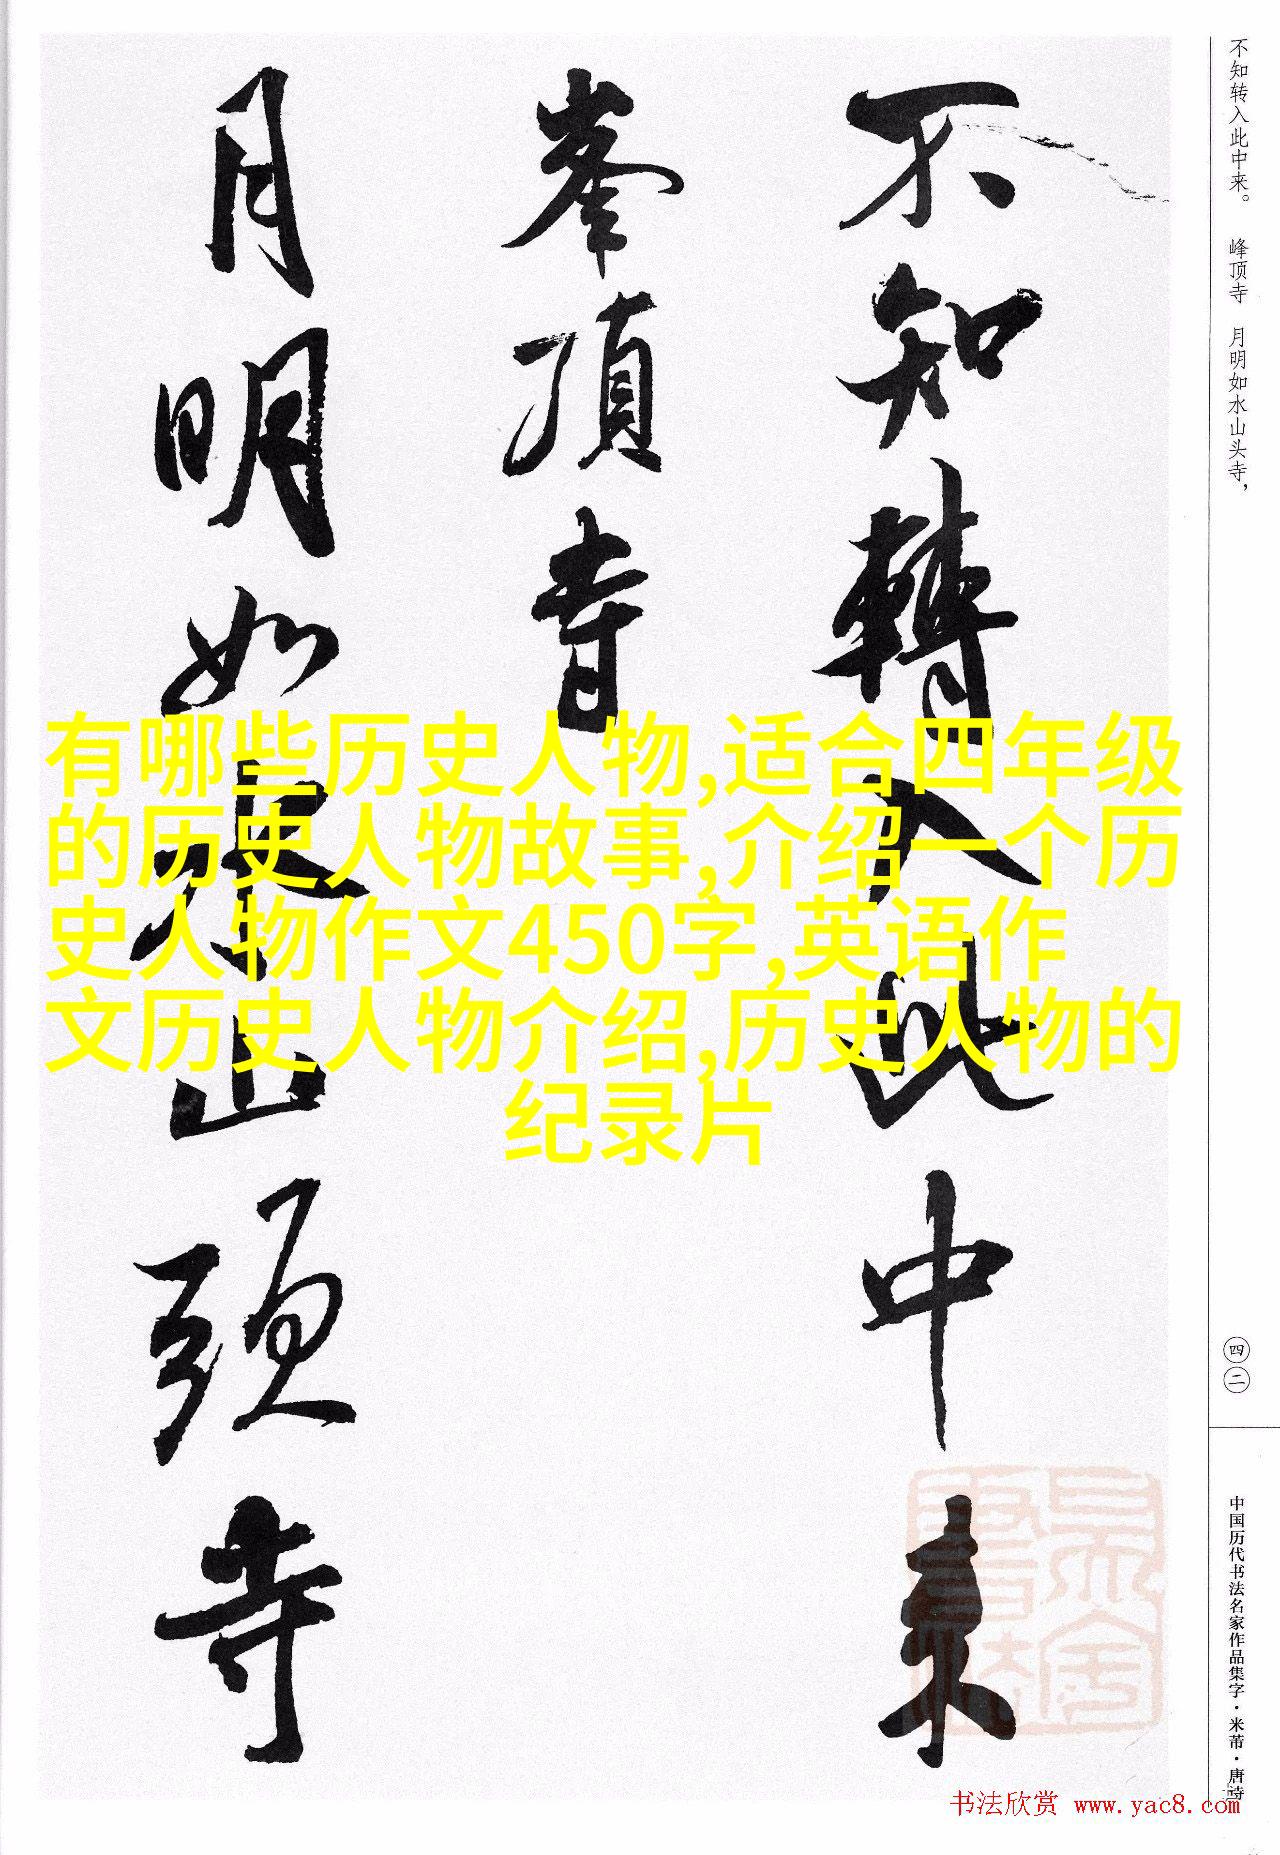 不知转入此中来。 峰顶寺 月明如水山头寺，
不知轉入此中来
峯頂寺
月明如水山頭寺
有哪些历史人物,适合四年级
的历史人物故事,介绍一个历
史人物作文450字,英语作
文历史人物介绍,历史人物的
纪录片
四二
中国历代书法名家作品集字·米芾·唐诗
书法欣赏 www.yac8.com